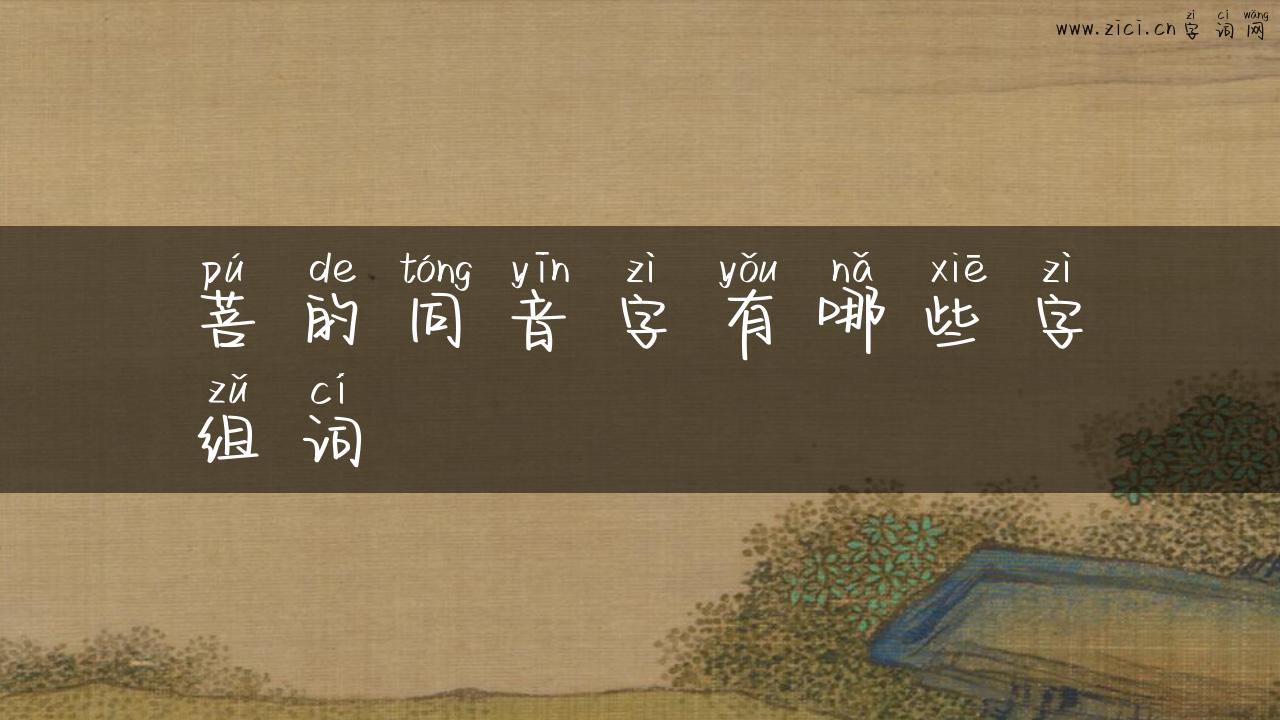 zì cí wǎng
www.zici.cn 字词网
pú de tóng yīn zì yǒu nǎ xiē zì
菩的同音字有哪些字
zǔ cí
组词